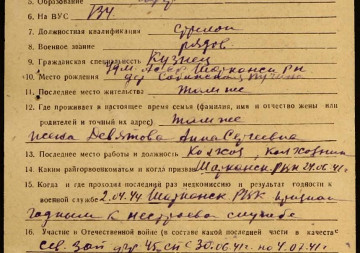 5. Образование
6. На ВУС 134
7. Должностная квалификация стрелок
8. Военное звание рядов
9. Гражданская специальность Кузнец
10. Место рождения
11. Последнее место жительства там же
12. Где проживает в настоящее время семья (фамилия, имя и отчество жены или
родителей и точный адрес) там же
жена Девятова Анна Сергеевна
13. Последнее место работы и должность Колхоз, колхозник
14. Каким райгорвоенкоматом и когда призван Шарканск. РВК 24.06.41г.
15. Когда и где проходил последний раз медкомиссию и результат годности к
военной службе 2.04.44 Шарканск РВК признан
годным к нестроевой службе
16. Участие в Отечественной войне (в составе какой последней части и в качестве
45 СП с 30.06.41г. по 4.07.41г.